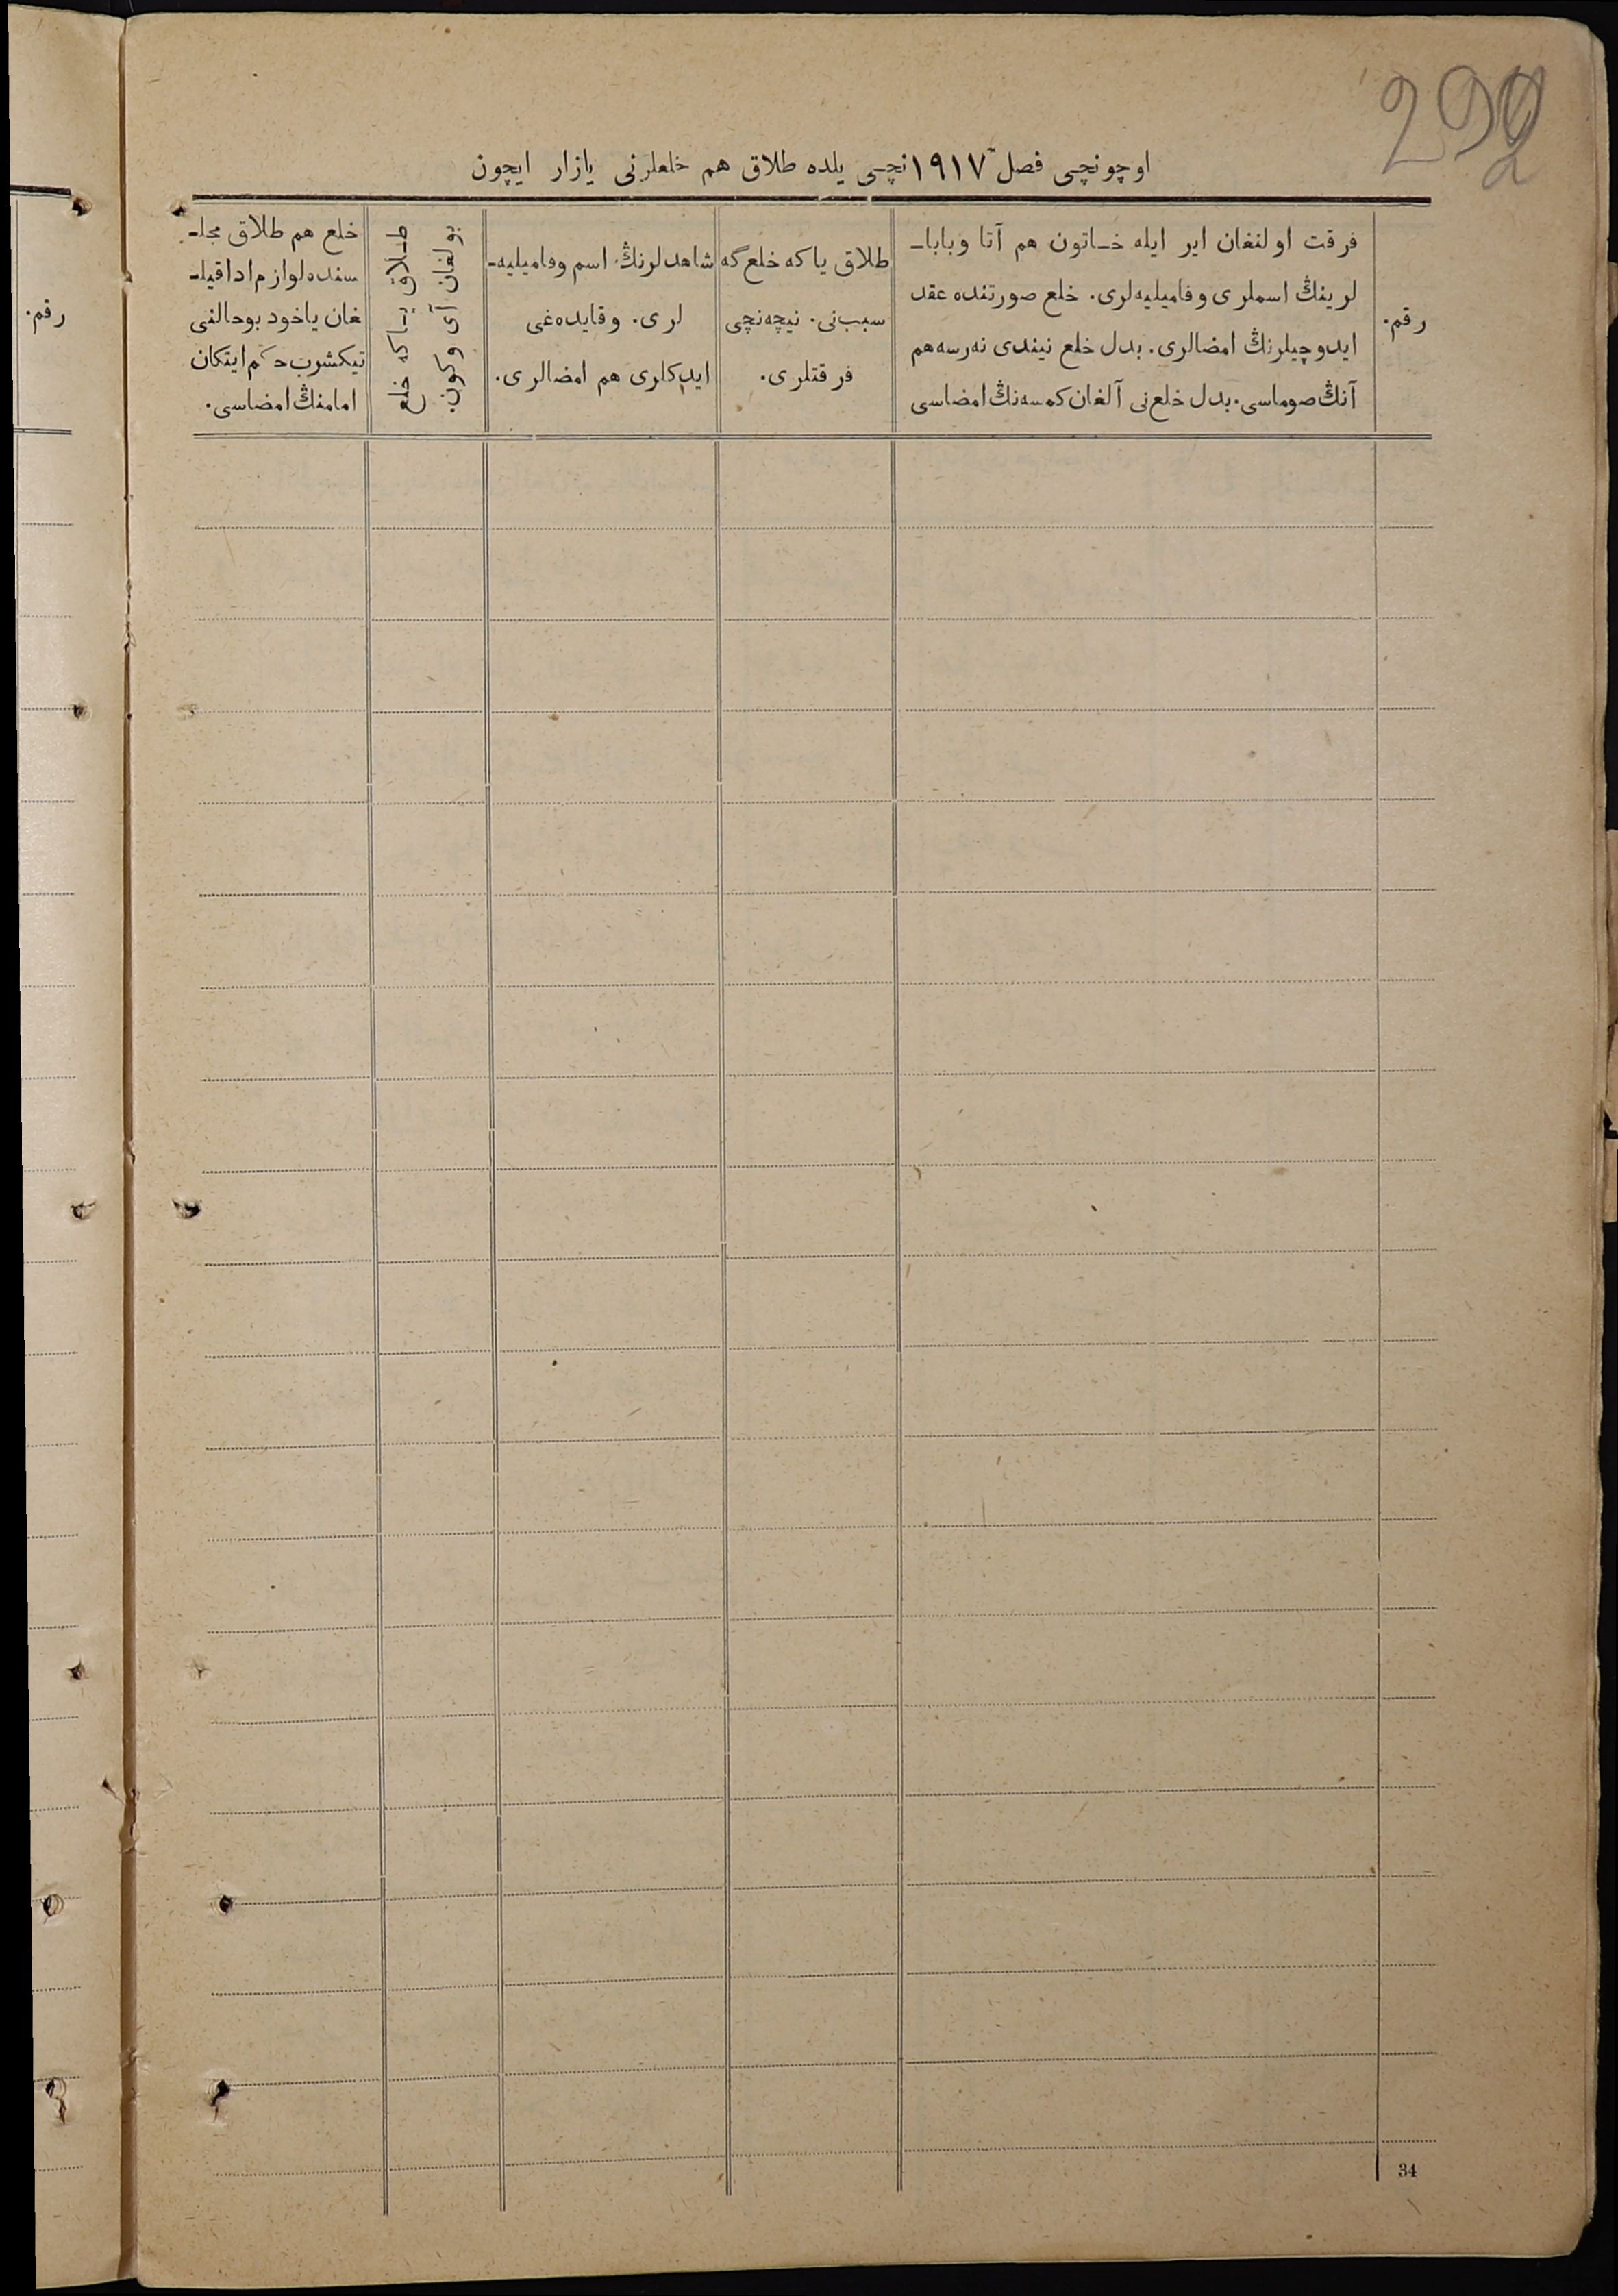 292
اوچونچی فصل ١٩١٧ نچی یلده طلاق هم خلعلرنی یازار ایچون
رقم.
فرقت اولنغان ایر ایله خـاتون هم آتا وبابا-
لرینڭ اسملری وفامیلیه‌لری. خلع صورتنده عقد
ایدوچیلرنڭ امضالری. بدل خلع نیندی نه‌رسه هم
آنڭ صوماسی. بدل خلع‌نی آلغان کمسه‌نڭ امضاسی
طلاق یا که خلع گه
سبب‌نی. نیچه‌نچی
فرقتلری.
شاهدلرنڭ اسم وفامیلیه-
لری. وقایده‌غی
ایدکلری هم امضالری.
طـلاق یـاکه خلع
بولغان آی وکون.
خلع هم طلاق مجلـ-
سنده لوازم ادا قیلـ-
غان یاخود بوحالنی
تیکشرب حکم ایتکان
امامنڭ امضاسی.
رقم.
34